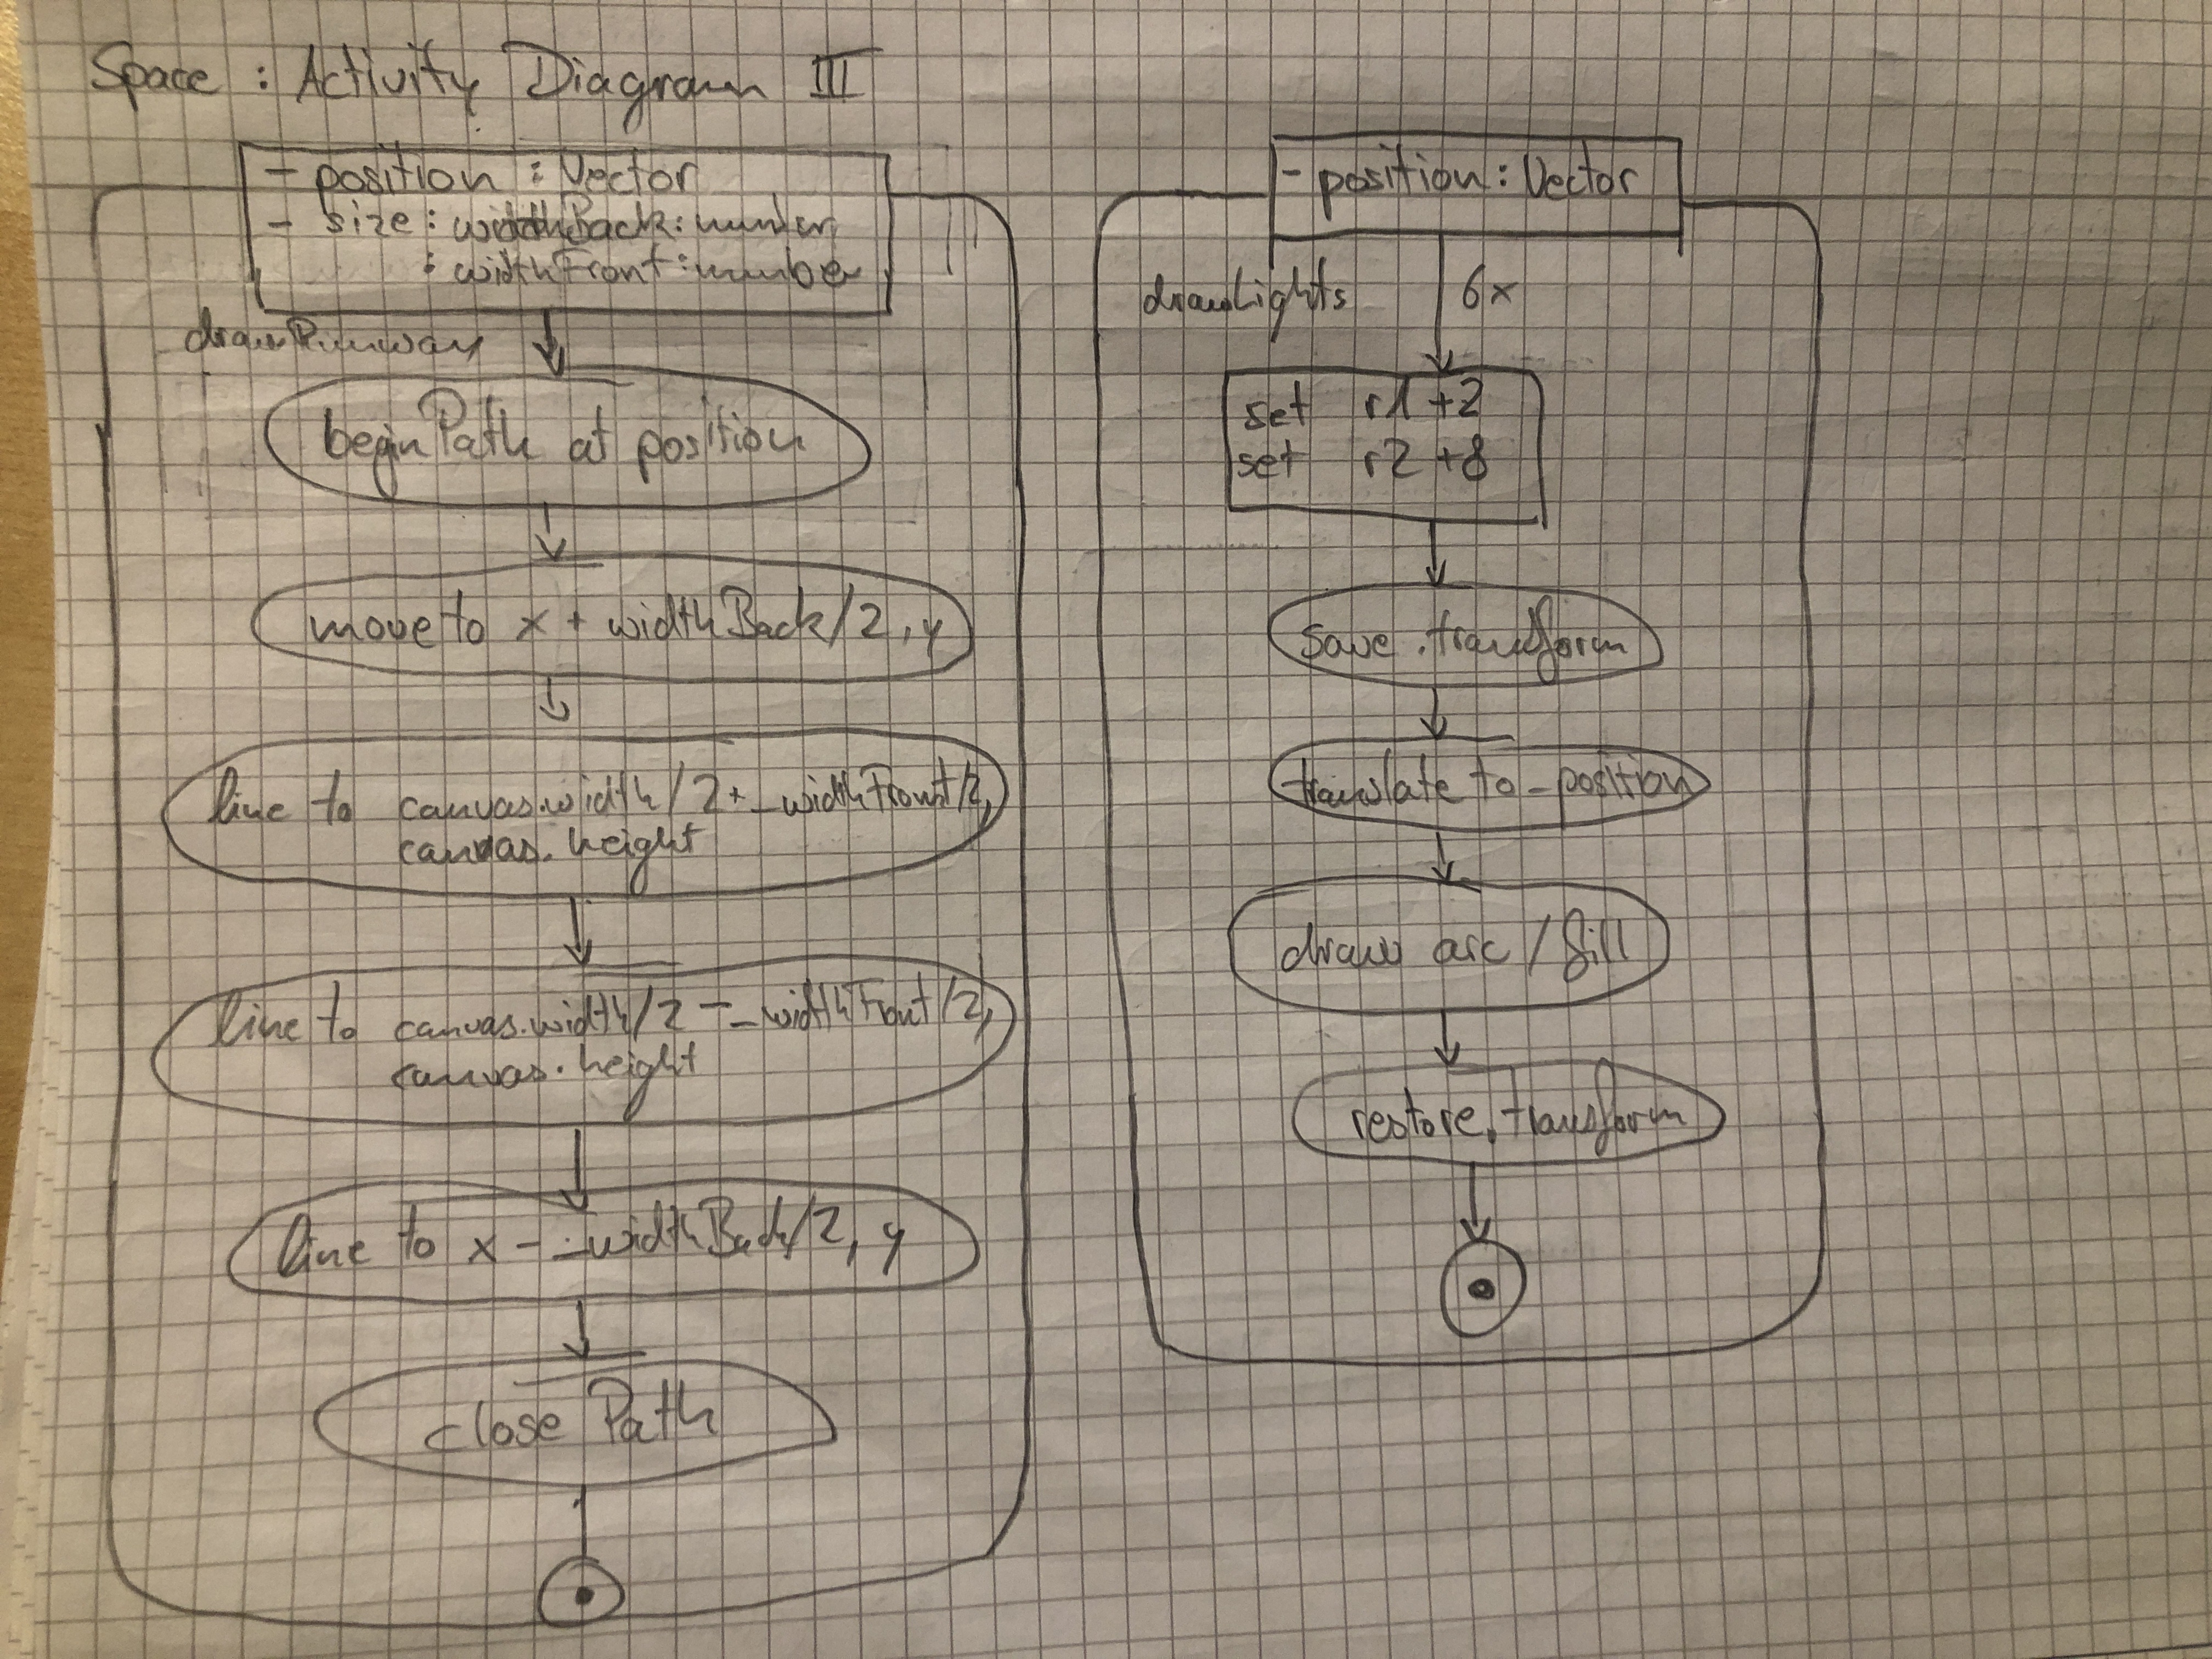 Space : Activity Diagram III
- position : Vector
- size : widthBack : number
: widthFront : number
drawRunway
beginPath at position
move to x + widthBack/2, y
line to canvas.width/2 + _widthFront/2,
canvas.height
line to canvas.width/2 - _widthFront/2,
canvas.height
line to x - _widthBack/2, y
close Path
- position : Vector
drawLights
6x
set r1 +2
set r2 +8
save .transform
translate to _position
draw arc / fill
restore, transform